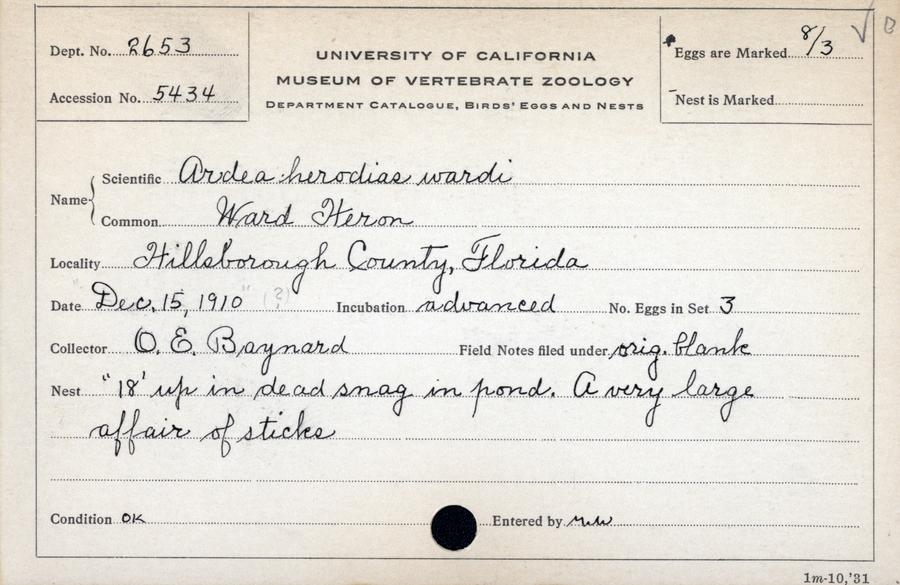 Dept. No. 2653
Accession No. 5434
UNIVERSITY OF CALIFORNIA
MUSEUM OF VERTEBRATE ZOOLOGY
DEPARTMENT CATALOGUE, BIRDS' EGGS AND NESTS
Eggs are Marked 8/3
Nest is Marked
Name
Scientific Ardea herodias wardi
Common Ward Heron
Locality Hillsborough County, Florida
Date Dec. 15, 1910 " (?) Incubation advanced No. Eggs in Set 3
Collector O. E. Baynard Field Notes filed under orig. blank
Nest "18' up in dead snag in pond. A very large
affair of sticks
Condition OK Entered by
1m-10,'31